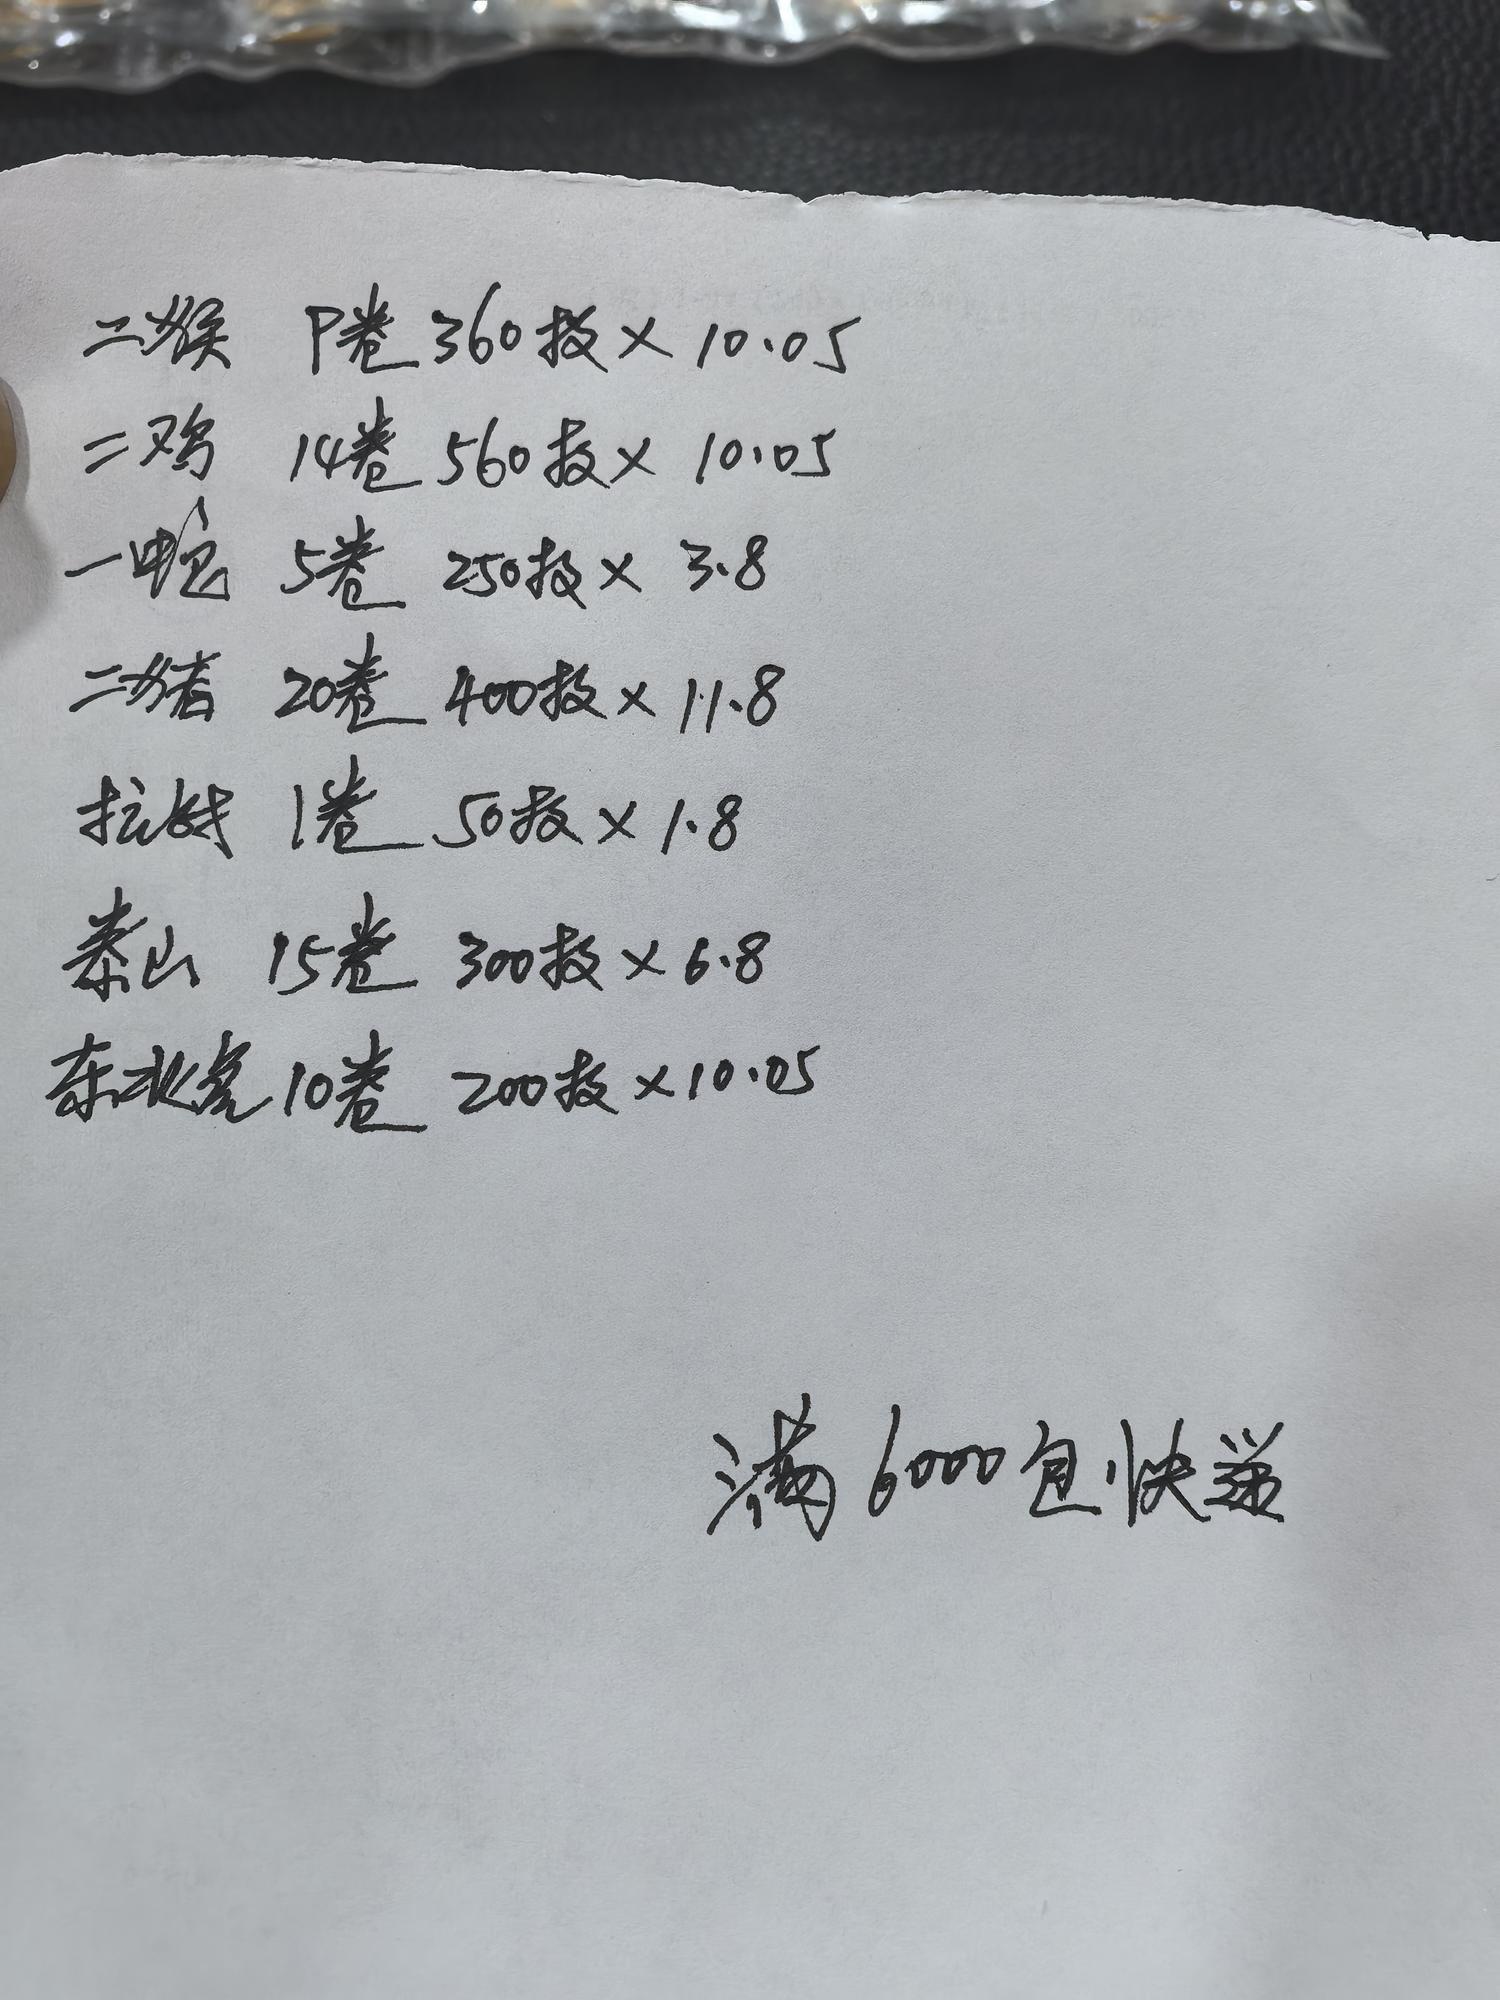 二猴 9卷 360枚×10.05
二鸡 14卷 560枚×10.05
一蛇 5卷 250枚×3.8
二猪 20卷 400枚×11.8
拉丝 1卷 50枚×1.8
泰山 15卷 300枚×6.8
东北虎 10卷 200枚×10.05
满6000包快递